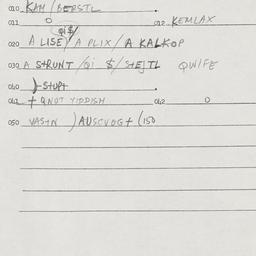 010 KAM / BERSTL
011 0 012 KEMLAX
qi $/
020 A LISE / A PLIX / A KALKOP
030 A STRUNT / qi $ / STEJTL QWIFE
040 STUPT
041 + QNOT YIDDISH 042 0
050 VASTN ) AUSCVOG + (150